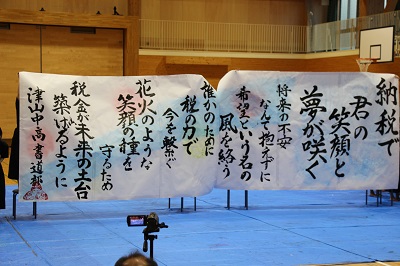 納税で
君の
笑顔と
夢が咲く
将来の不安
なんて抱えずに
希望という名の
風を纏う
誰かのために
税の力で
今を繋ぐ
花火のような
笑顔の種を
守るため
税金が未来の土台
築けるように
津山中高書道部